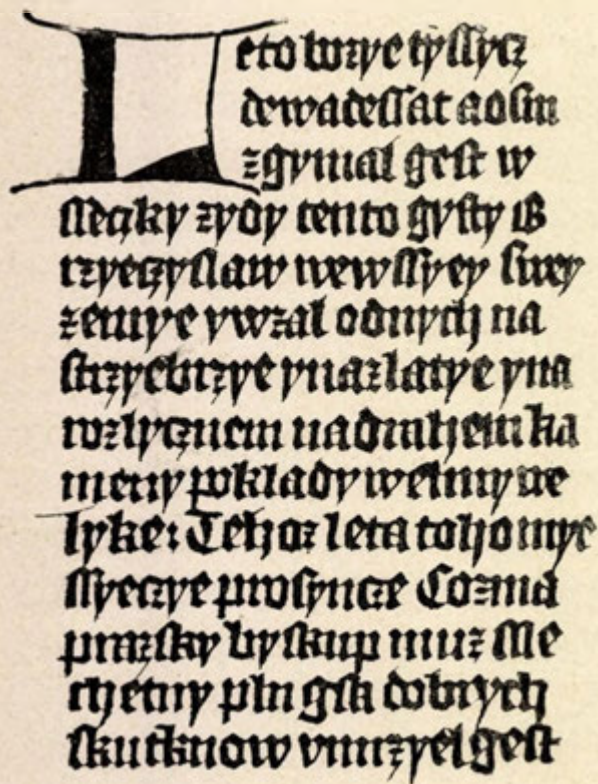 Leto bozye tyssycz
dewadessat aosm
zgymal gest w
sseczky zydy tento gysty B
rzyeczyslaw wewssyey swey
zemye ywzal odnych na
strzyebrzye ynazlatye yna
rozlycznem nadrahem ka
meny poklady welmy we
lyke: Tehoz leta toho mye
ssyeczye prosyncze Cozma
prazsky byskup muz sle
chetny pln gsa dobrych
skutkuow vmrzyel gest